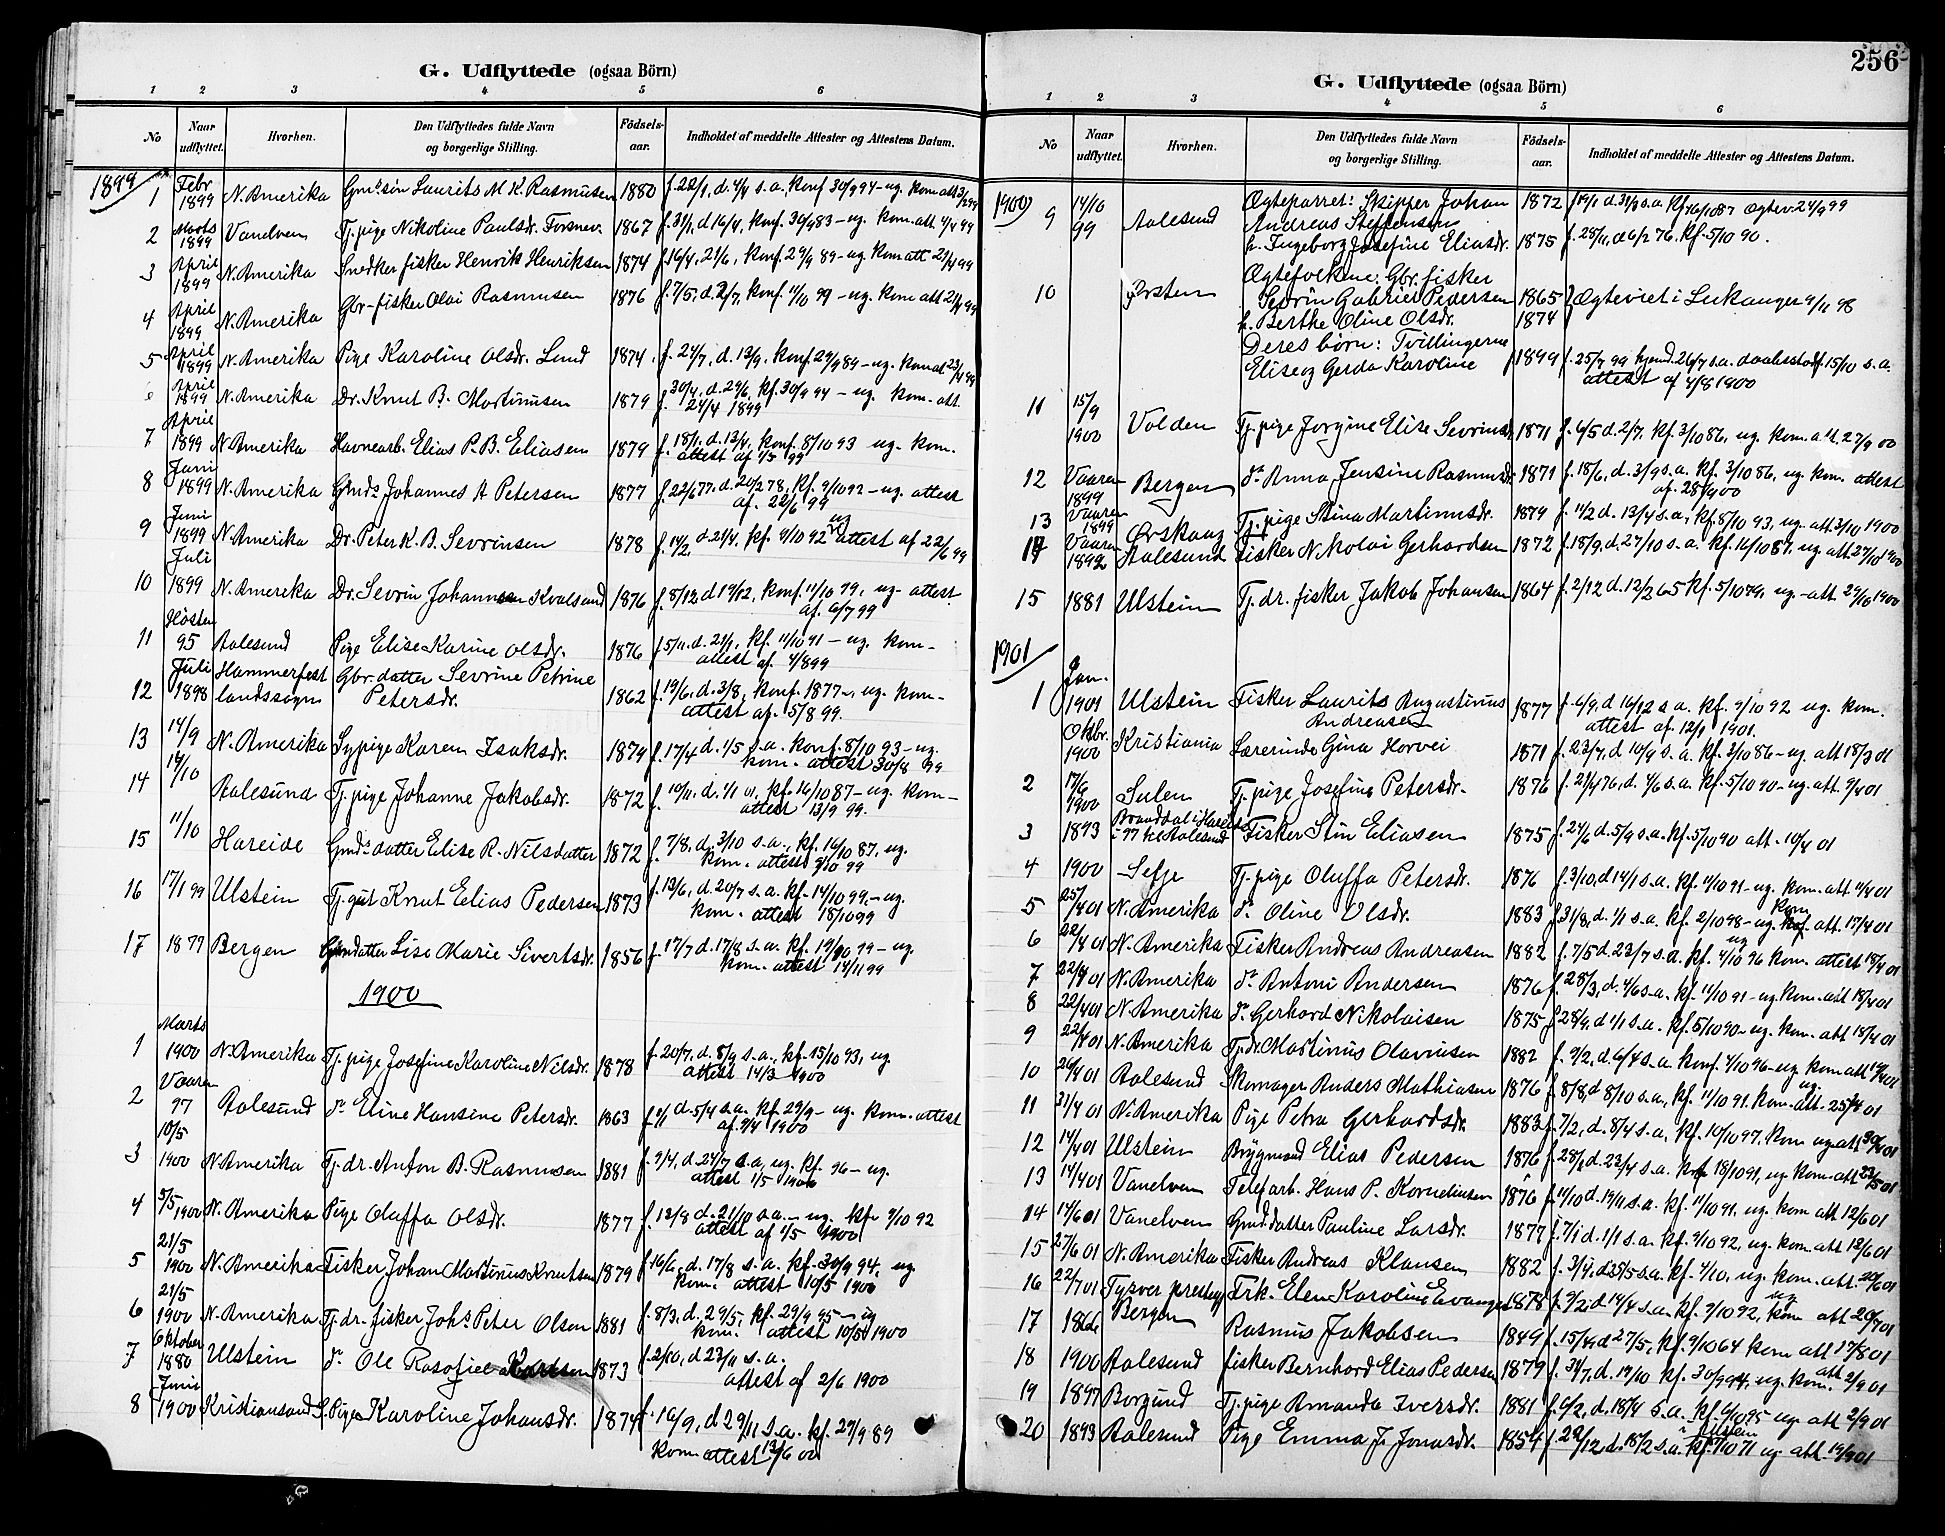 G. Udflyttede (ogsaa Börn)
1 2 3 4 5 6
No
Naar udflyttet.
Hvorhen.
Den Udflyttedes fulde Navn og borgerlige Stilling.
Födsels-aar.
Indholdet af meddelte Attester og Attestens Datum.
1899
1 Febr 1899 N. Amerika Gmds søn Laurits M K. Rasmusen 1880 f. 22/1, d. 4/4 s. a. konf 30/9 94 - ug. kom att
2 Marts 1899 Vanelven Tj. pige Nikoline Paulsdr. 1867 f. 31/1, d 16/4, konf. 30/9 83 - ug. kom. att. 4/4 99
3 April 1899 N. Amerika Snedker fisker Henrik Henriksen 1874 f. 16/4, 21/6, konf. 29/9 89 - ug kom att 21/4 99
4 April 1899 N. Amerika Gbr-fisker Olai Rasmusen 1876 f. 7/5, d. 2/7, konf. 11/10 - ug. kom att 21/4 99
5 April 1899 N. Amerika Pige Karoline Olsdr. Lund 1874. f. 24/7, d. 13/9. konf 29/9 89 - ug. kom at 23/4 99
6 April 1899 N. Amerika Dr. Knut B. Martinusen 1879 f. 30/4, d. 29/6, kf. 30/9 94 - ug. kom. att. 24/4 1899
7 April 1899 N. Amerika Havnearb. Elias P. B. Eliasen 1879 f. 18/1, d. 13/4, konf. 8/10 93 ug. kom.
attest af 1/5 99
8 Juni 1899 N. Amerika Gmds Johannes A Petersen 1877 f. 22/6 77. d. 20/2 78, kf. 9/10 92 - ug. attest
af. 22/6 99
9 Juni 1899 N. Amerika Dr. Peter K. B. Sevrinsen 1878 f. 14/2, d 21/4, kf. 9/10 92 ug attest af 22/6 99
10 Juli 1899 N. Amerika Dr. Sevrin Johannesen Kvalsund 1876 f. 5/12 d 19/12, konf. 11/10, ug - attest
af. 6/7 99
11 Høsten 95 Aalesund Pige Elise Karine Olsdr. 1876 f. 5/11. d. 21/1, kf. 11/10 91 - ug. kom -
attest af. 4/8 99
12 Juli 1898 Hammerfest landssogn Gbr. datter Sevrine Petrine Petersdr. 1862 f. 19/6, d. 3/8, konf. 1877 -, ug. kom -
attest af. 5/8 99.
13 14/9 N. Amerika Sypige Karen Isaksdr. 1879 f. 17/4 d. 1/5 s. a. konf. 8/10 93 - ug.
kom. attest 30/8 99
14 14/10 Aalesund Tj. pige Johanne Jakobsdr. 1872 f. 10/11. d. kf. 16/10 87 - ug. kom -
attest 13/9 99.
15 11/10 Hareide Gmds datter Elise R. Nilsdatter 1872 f. 7/8, d. 3/10 s. a., kf. 16/10 87, ug.
kom. attest 9/10 99
16 17/1 99 Ulstein Tj. gut Knut Elias Pedersen 1873 f. 13/6, d. 20/7 s. a. kf. 14/10 - ug.
kom. attest 18/10 99
17 1877 Bergen Gmdatter Lise Marie Sivertsdr. 1856 f. 17/7 d. 17/8 s. a. kf. - ug.
kom. attest 14/11 99
1900
1 Marts 1900 N. Amerika Tj. pige Josefine Karoline Nilsdr. 1878 f. 20/7, d. 8/9 s. a., kf. 15/10 93, ug
attest 14/3 1900
2 Vaaren 97 Aalesund dr Eline Hansine Petersdr. 1863 f. d - 5/4 s. a. kf 29/9 - ug. kom. attest
af. 9/4 1900
3 10/5 1900 N. Amerika Tj. dr. Anton B. Rasmusen 1881 f. 9/4, d. 24/7 s. a, ug. kf. 96 - ug.
attest 1/5 1900
4 5/5 1900 N. Amerika Pige Oluffa Olsdr. 1877 f. 12/8 d. 21/10 s. a. - ug. kf. 9/10 92
attest af 1/5 1900
5 21/5 1900 N. Amerika Fisker Johan Martinus Knutsen 1879 f. 16/6, d. 17/8 s. a. kf. 30/9 94, ug
kom. attest 10/5 1900
6 21/5 1900 N. Amerika Tj. dr. fisker Johs Peter Olsen 1881 f. 8/3, d. 29/5, kf. 29/9 95 - ug
kom. attest 10/5 1900
7 Oktober 1880 Ulstein dr. Ole 1873 f. 2/10, d 23/11 s. a.
attest af 2/6 1900
8 Juni 1900 Kristiansund S. Pige Karoline Johansdr. 1874 f. 16/9, d 29/11 s. a. kf. 29/9 89
kom attest 13/6 00
256
G. Udflyttede (ogsaa Börn)
1 2 3 4 5 6
No
Naar udflyttet.
Hvorhen.
Den Udflyttedes fulde Navn og borgerlige Stilling.
Födsels-aar.
Indholdet af meddelte Attester og Attestens Datum.
1900
9 14/10 99 Aalesund Ægteparret: Skipper Johan 1872 f 19/1 d. 31/3 s. a kf 16/10 87 ægtev. 24/9 99
Andreas Steffensen
h. Ingeborg Josefine Eliasdr. 1875 f. 28/11, d 6/2 76. kf. 5/10 90.
10 Ørsten Ægtefolkene: Gbr. fisker
Sevrin Gabriel Pedersen 1865 Ægteviet i Leikanger 9/11 98
h. Berthe Oline Olsdr. 1874
Deres børn: Tvillingerne
Elise og Gerda Karoline 1899 f. 25/7 99 hjemd. 26/7 s. a. daabsstadf 15/10 s. a.
attest af 4/8 1900
11 15/9 1900 Volden Tj. pige Jorgine Elise Sevrinsdr 1871 f. 6/5 d. 2/7, kf. 3/10 86, ug. kom. att. 27/9 00
12 Vaaren 1899 Bergen dr Anna Jensine Rasmusdr 1871 f. 18/6, d. 3/9 s. a. kf. 3/10 86, ug. kom. attest
af. 28/9 00
13 Vaaren 1899 Ørskaug Tj. pige Stina Martinusdr. 1879 f. 11/2 d. 13/4 s. a, kf. 8/10 93, ug. att. 3/10 1900
14 Vaaren 1892 Aalesund fisker Nikolai Gerhardsen 1872 f. 18/9. d. 27/10 s. a. kf. 16/10 87. ug att. 27/10 1900
15 1881 Ulstein Tj. dr. fisker Jakob Johansen 1864 f. 2/12 d. 12/2 65 kf. 5/10 79, ug. - att. 29/10 1900
1901
1 Jan. 1901 Ulstein Fisker Laurits Augustinius 1877 f. 6/9, d 16/12 s. a. kf. 9/10 92 ug. kom.
Andreasen attest af. 12/1 1901.
Oktbr. 1900 Kristiania Lærerinde Gina Horvei 1871 f. 23/7, d. 10/9 s. a. kf. 3/10 86 - ug att 18/3 01
2 17/6 1900 Sulen Tj. pige Josefine Petersdr. 1876 f. 21/4 76, d. 4/6 s. a. kf. 5/10 90 - ug. att. 9/4 01
3 1893 Brandal i Hareide i 97 til Aalesund Fisker Stin Eliasen 1875 f. 24/6 d. 5/9 s. a. kf. 5/10 90 att. 10/4 01
4 1900 Selje Tj. pige Oluffa Petersdr. 1876 f. 3/10, d 14/1 s. a. kf. 11/10 91 - ug. kom. att. 11/4 01
5 25/4 01 N. Amerika dr. Oline Olsdr. 1883 f 31/8, d. 1/1 s. a. kf. 2/10 98 - ug. kom att. 17/4 01
6 22/4 01 N. Amerika Fisker Andreas Andreasen 1882 f. 7/5 d. 23/7 s. a. kf. 4/10 96 ug kom. attest 18/4 01
7 22/4 01 N. Amerika dr. Antoni Andersen 1876 f. 28/3, d. 4/6 s. a. kf. 11/10 91 - ug. kom. att 18/4 01
8 22/4 01 N. Amerika dr. Gerhard Nikolaisen 1875 f 28/9, d 1/1 s. a. kf. 5/10 90 - ug. kom. att 18/4 01
9 22/4 01 N. Amerika Tj. dr. Martinus Olavusen 1882 f. 9/2, d. 6/4 s. a. konf. 4/10 96 - ug kom att 19/4 01
10 26/4 01 Aalesund Skomager Anders Mathiasen 1876 f. 8/8, d 8/10 s. a., kf. 11/10 91. kom. ug att. 25/4 01
11 31/4 01 N. Amerika Pige Petra Gerhardsdr. 1883 f. 7/2, d. 8/4 s. a, kf. 10/10 97, kom ug att 30/4 01
12 14/4 01 Ulstein Brygmand Elias Pedersen 1876 f. 28/2 d. 23/4 s. a. kf 18/10 91, ug kom. att. 23/5 01
13 14/4 01 Vanelven Telefarb. Hans P. Korneliusen 1876 f. 11/10 d. 19/11 s. a. kf. 11/10 91, ug. kom att 12/6 01
14 14/6 01 Vanelven Gmds datter Pauline Larsdr. 1877 f. 7/1 d. 1/1 s. a. kf. 9/10 92, ug. kom. att. 12/6 01
15 27/6 01 N. Amerika Fisker Andreas Klausen 1882 f. 3/4, d 25/5 s. a. kf. 4/10, ug. kom. att. 20/6 01
16 22/7 01 Tysver prestegj Frk. Elen Karoline Evanger 1878 f. 9/2, d. 14/4 s. a. kf. 9/10 92, ug kom att 20/7 01
17 1866 Bergen Rasmus Jakobsen 1849 f. 15/4, d 27/5, kf. 9/10 64 kom att 13/8 01
18 1900 Aalesund fisker Bernhard Elias Pedersen 1879 f. 31/7, d. 19/10 kf. 30/9 94, ug. kom. att 2/9 01
19 1897 Borgund Tj. pige Amanda Iversdr. 1881 f. 6/2, d. 18/4 s. a. kf. 6/10 95 ug. att 2/9 01
20 1893 Aalesund Pige Emma J. Jonasdr. 1854 f. 22/12 d. 18/2 s. a. kf. i Ulstein 9/10 71 ug att. 19/9 01